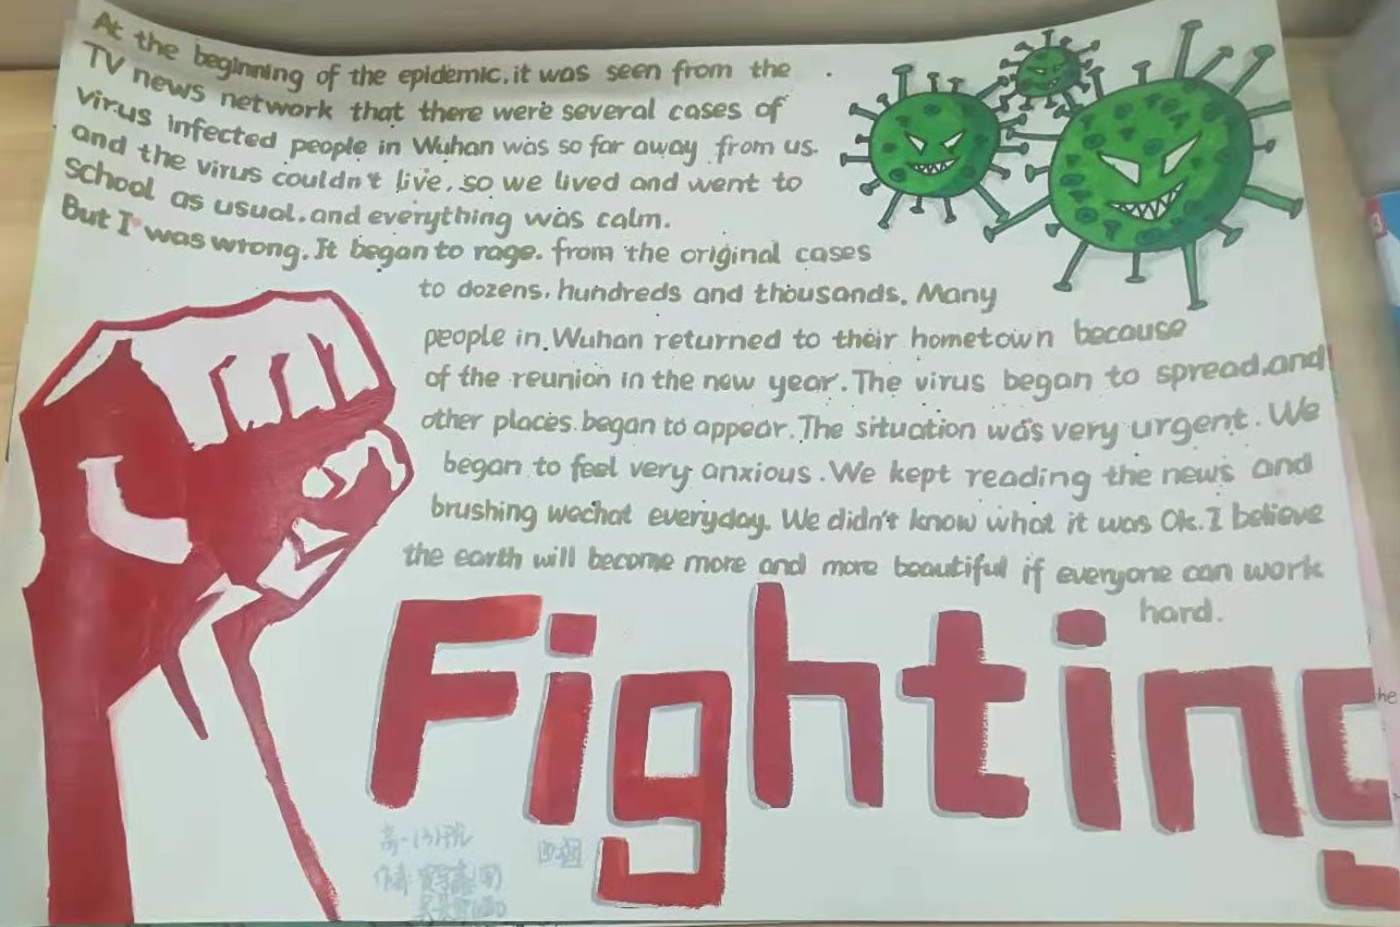 At the beginning of the epidemic, it was seen from the
TV news network that there were several cases of
virus infected people in Wuhan was so far away from us.
and the virus couldn't live, so we lived and went to
School as usual, and everything was calm.
But I was wrong. It began to rage. from the original cases
to dozens, hundreds and thousands. Many
people in Wuhan returned to their hometown because
of the reunion in the new year. The virus began to spread, and
other places began to appear. The situation was very urgent. We
began to feel very anxious. We kept reading the news and
brushing wechat everyday. We didn't know what it was Ok. I believe
the earth will become more and more beautiful if everyone can work
hard.
Fighting
高一(3)班
作者
he